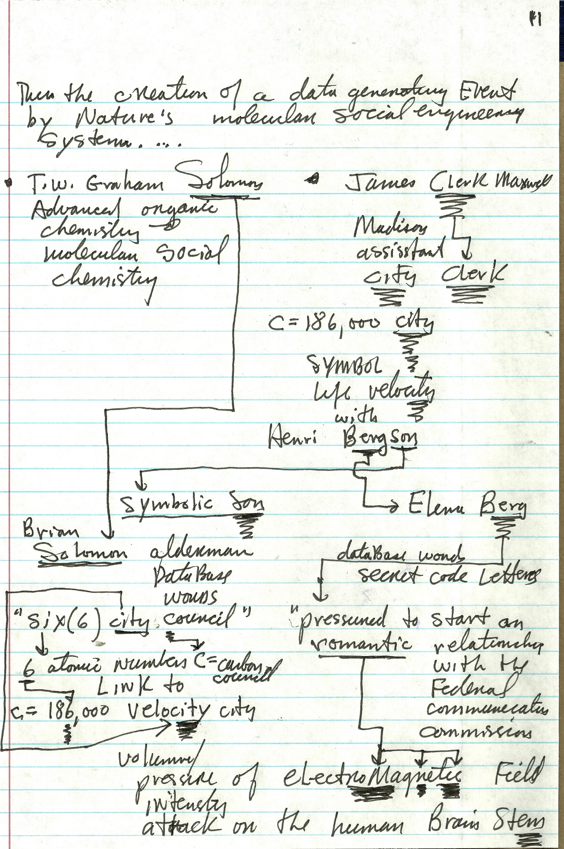 11
Then the creation of a data generating Event
by Nature's molecular social engineering
System. . . .
• T.W. Graham Solomons
Advanced organic
chemistry →
molecular social
chemistry
• James Clerk Maxwell
Madison
assistant
city Clerk
C = 186,000 city
SYMBOL
life velocity
with
Henri Bergson
Symbolic Son
Elena Berg
Brian
Solomon alderman
DataBase
words
"six(6) city council"
6 atomic numbers C = carbon
council
Link to
c = 186,000 velocity city
dataBase words
secret code Letters
"pressured to start an
romantic relationship
with the
Federal
communications
commission
volumn/
pressure of electroMagnetic Field
intensity
attack on the human Brain Stem